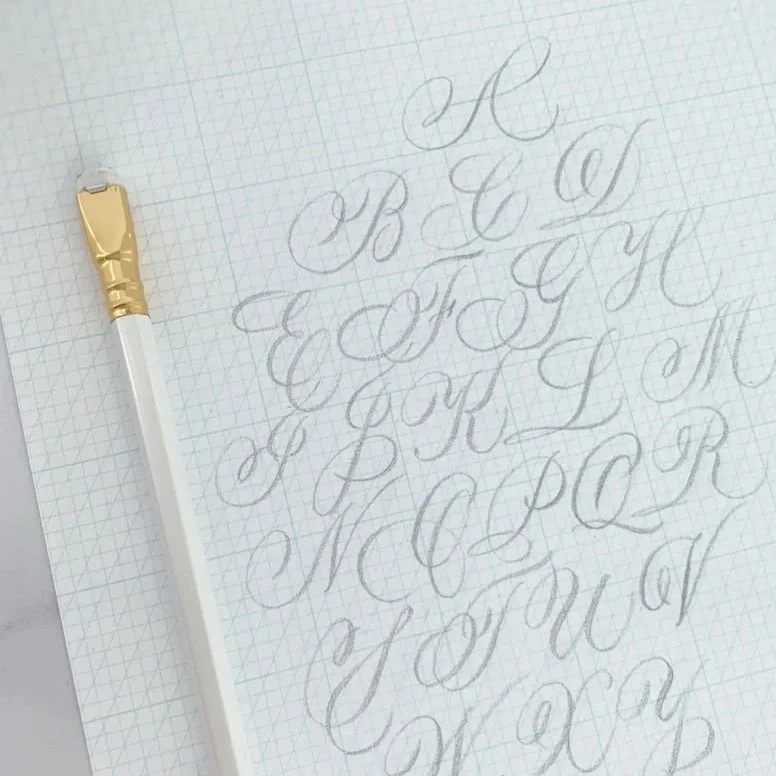 A
B C D
E F G H
I J K L M
N O P Q R
S T U V
W X Y